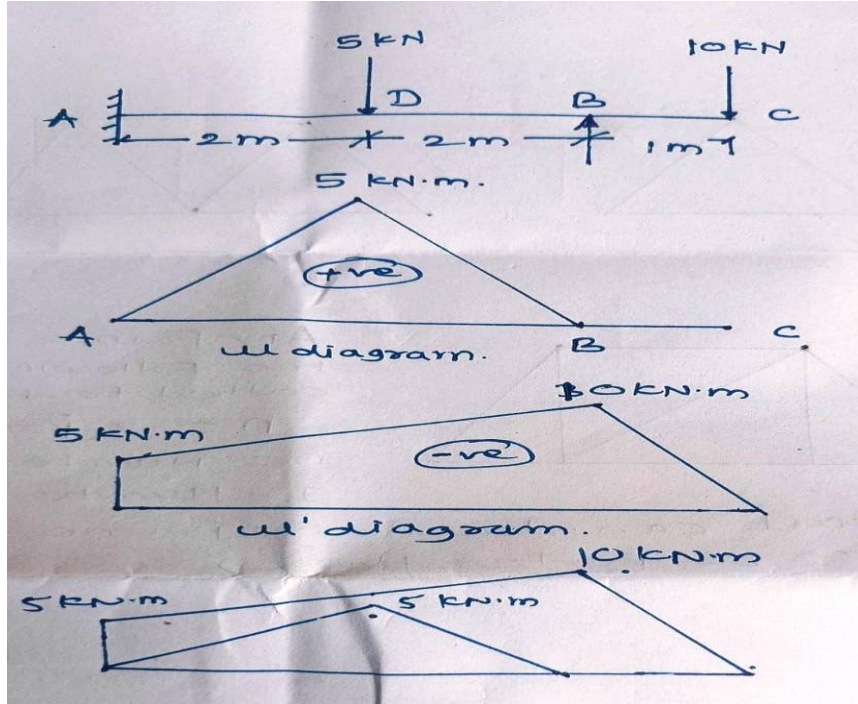 5 KN 10 KN
A D B C
2 m 2 m 1 m
5 KN.m.
+ve
A B C
μ diagram.
5 KN.m 10 KN.m
-ve
μ' diagram.
10 KN.m
5 KN.m 5 KN.m